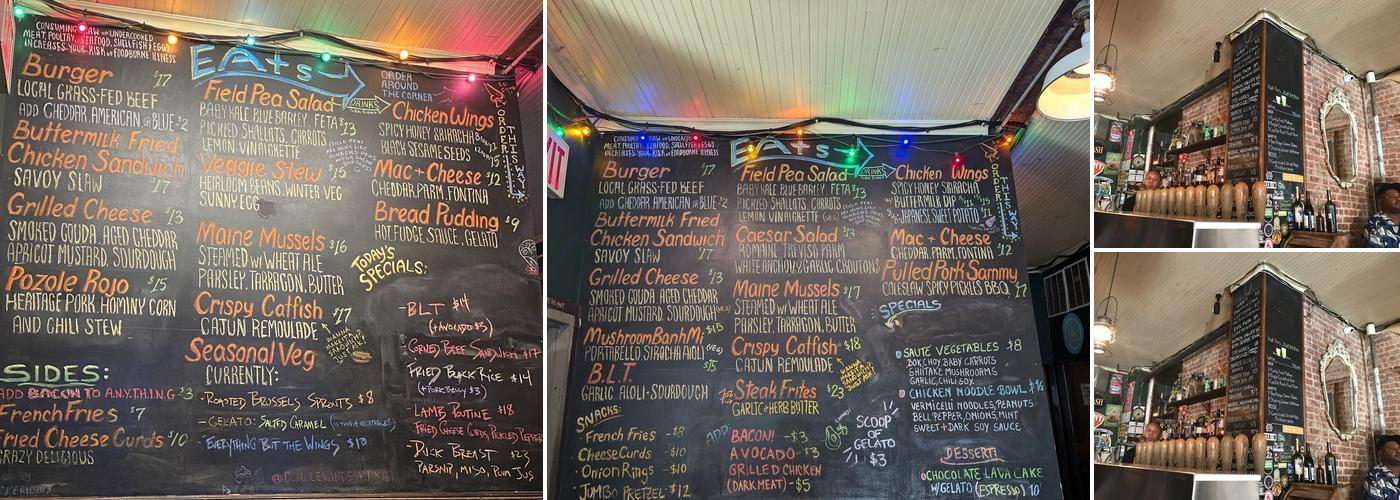 CONSUMING RAW OR UNDERCOOKED
MEAT, POULTRY, SEAFOOD, SHELLFISH & EGGS
INCREASES YOUR RISK OF FOODBORNE ILLNESS
EATS
Burger $17
LOCAL GRASS-FED BEEF
ADD CHEDDAR AMERICAN OR BLUE $2
Buttermilk Fried
Chicken Sandwich
SAVOY SLAW 17
Grilled Cheese $13
SMOKED GOUDA, AGED CHEDDAR
APRICOT MUSTARD, SOURDOUGH
Pozole Rojo $15
HERITAGE PORK, HOMINY CORN
AND CHILI STEW
SIDES:
ADD BACON TO A.N.Y.T.H.I.N.G $3
French Fries $7
Fried Cheese Curds $10
CRAZY DELICIOUS
Field Pea Salad
BABY KALE, BLUE BARLEY, FETA $13
PICKLED SHALLOTS, CARROTS
LEMON VINAIGRETTE
Veggie Stew $15
HEIRLOOM BEANS, WINTER VEG
SUNNY EGG
Maine Mussels $16
STEAMED W/ WHEAT ALE
PARSLEY, TARRAGON, BUTTER
Crispy Catfish $17
CAJUN REMOULADE
Seasonal Veg
CURRENTLY:
-ROASTED BRUSSELS SPROUTS $8
-GELATO: SALTED CARAMEL (IS THIS A VEGETABLE?)
-EVERYTHING BUT THE WINGS $13
ORDER
AROUND
THE CORNER
DRINKS
Chicken Wings
SPICY HONEY SRIRACHA
BLACK SESAME SEEDS $15
Mac + Cheese $12
CHEDDAR, PARM, FONTINA
Bread Pudding $9
HOT FUDGE SAUCE, GELATO
ORDER THIS WAY
TODAY'S
SPECIALS:
-BLT $14
(+AVOCADO $3)
-CORNED BEEF SANDWICH $17
FRIED BLACK RICE $14
(+PORK BELLY $3)
-LAMB POUTINE $18
FRIED CHEESE CURDS, PICKLED PEPPER
-DUCK BREAST $23
PARSNIP, MISO, RUM JUS
CONSUMING RAW OR UNDERCOOKED
MEAT, POULTRY, SEAFOOD, SHELLFISH & EGGS
INCREASES YOUR RISK OF FOODBORNE ILLNESS
EATS
EXIT
Burger $17
LOCAL GRASS-FED BEEF
ADD CHEDDAR AMERICAN OR BLUE $2
Buttermilk Fried
Chicken Sandwich
SAVOY SLAW 17
Grilled Cheese $13
SMOKED GOUDA, AGED CHEDDAR
APRICOT MUSTARD, SOURDOUGH
Mushroom Banh Mi $15
PORTABELLO, SIRACHA AIOLI (VEG)
B.L.T. $15
GARLIC AIOLI + SOURDOUGH
SNACKS:
French Fries -$8
Cheese Curds -$10
Onion Rings -$10
JUMBO PRETZEL -$12
Field Pea Salad
BABY KALE, BLUE BARLEY, FETA $13
PICKLED SHALLOTS, CARROTS
LEMON VINAIGRETTE (VEG)
Caesar Salad $13
ROMAINE, TREVISO, PARM
WHITE ANCHOVY/GARLIC CROUTONS
Maine Mussels $17
STEAMED W/ WHEAT ALE
PARSLEY, TARRAGON, BUTTER
Crispy Catfish $18
CAJUN REMOULADE
7oz Steak Frites $23
GARLIC + HERB BUTTER
ADD
BACON! -$3
AVOCADO -$3
GRILLED CHICKEN
(DARK MEAT) -$5
SCOOP
OF
GELATO
$3
DRINKS
Chicken Wings
SPICY HONEY SRIRACHA
W/ BUTTERMILK DIP
JAPANESE SWEET POTATO
Mac + Cheese
CHEDDAR, PARM, FONTINA 12
Pulled Pork Sammy
COLESLAW SPICY PICKLES BBQ $17
ORDER THIS WAY
SPECIALS
SAUTÉ VEGETABLES $8
BOK CHOY BABY CARROTS
SHIITAKE MUSHROOMS
GARLIC, CHILI, SOY
CHICKEN NOODLE BOWL $16
VERMICELLI NOODLES, PEANUTS
BELL PEPPER, ONIONS, MINT
SWEET + DARK SOY SAUCE
DESSERT!
CHOCOLATE LAVA CAKE
W/ GELATO (ESPRESSO) 10